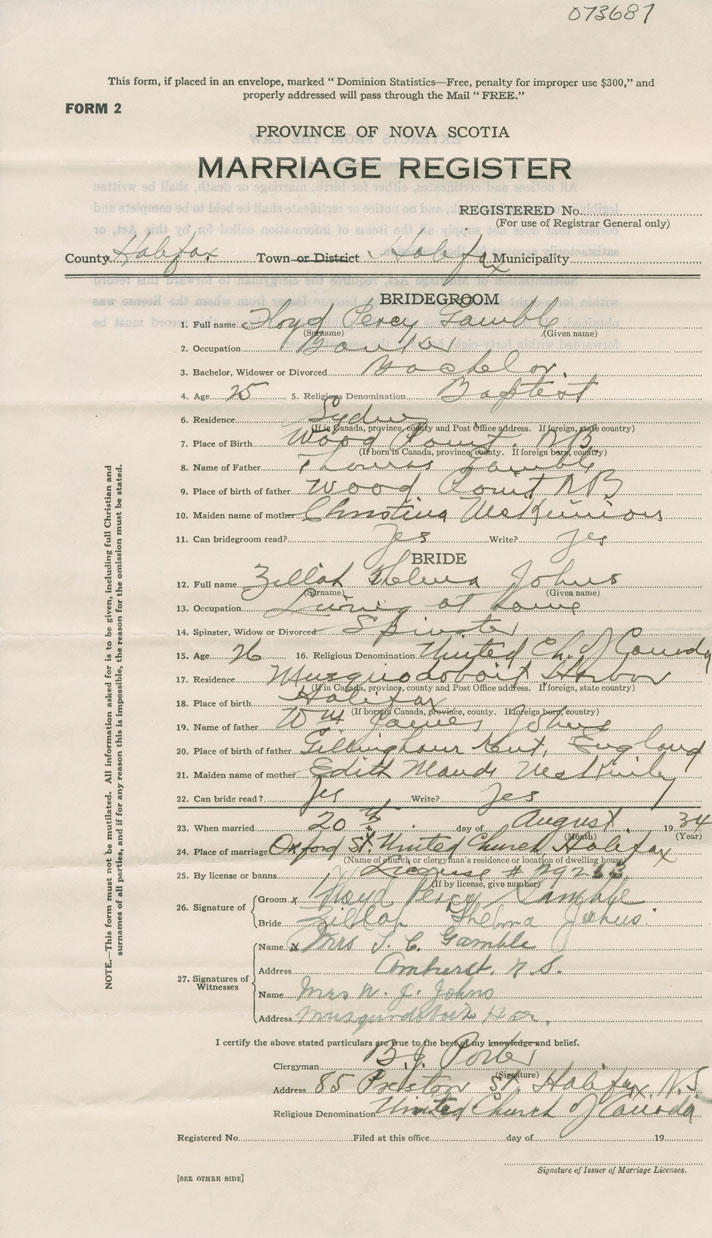 073687
This form, if placed in an envelope, marked "Dominion Statistics—Free, penalty for improper use $300," and
properly addressed will pass through the Mail "FREE."
FORM 2
PROVINCE OF NOVA SCOTIA
MARRIAGE REGISTER
REGISTERED No.
(For use of Registrar General only)
County Halifax Town or District Halifax Municipality
BRIDEGROOM
1. Full name Floyd Percy Gamble
(Surname) (Given name)
2. Occupation Banker
3. Bachelor, Widower or Divorced Bachelor.
4. Age 25 5. Religious Denomination Baptist
6. Residence Sydney
(If in Canada, province, county and Post Office address. If foreign, state country)
7. Place of Birth Wood Point. N.B
(If born in Canada, province, county. If foreign born, country)
8. Name of Father Thomas Gamble
9. Place of birth of father Wood Point N.B
10. Maiden name of mother Christina McKinnon
11. Can bridegroom read? Yes Write? Yes
BRIDE
12. Full name Zillah Thelma Johns
(Surname) (Given name)
13. Occupation Living at home
14. Spinster, Widow or Divorced Spinster
15. Age 26 16. Religious Denomination United Ch. of Canada
17. Residence Musquodoboit Harbor
(If in Canada, province, county and Post Office address. If foreign, state country)
18. Place of birth Halifax
(If born in Canada, province, county. If foreign born, country)
19. Name of father Wm James Johns
20. Place of birth of father Gillingham Kent, England
21. Maiden name of mother Edith Maude McKinley
22. Can bride read? Yes Write? Yes
23. When married 20th day of August, 1934
(Month) (Year)
24. Place of marriage Oxford St. United Church Halifax
(Name of church or clergyman's residence or location of dwelling house)
25. By license or banns License #
(If by license, give number)
26. Signature of Groom x Floyd Percy Gamble
Bride Zillah Thelma Johns.
27. Signatures of Witnesses
Name x Mrs T. C. Gamble
Address Amherst. N.S.
Name Mrs W. J. Johns
Address Musquodoboit Har.
I certify the above stated particulars are true to the best of my knowledge and belief.
Clergyman B.J. Porter
(Signature)
Address 85 Preston St. Halifax, N.S
Religious Denomination United Church of Canada
Registered No. Filed at this office day of 19
Signature of Issuer of Marriage Licenses.
[SEE OTHER SIDE]
NOTE.—This form must not be mutilated. All information asked for is to be given, including full Christian and
surnames of all parties, and if for any reason this is impossible, the reason for the omission must be stated.